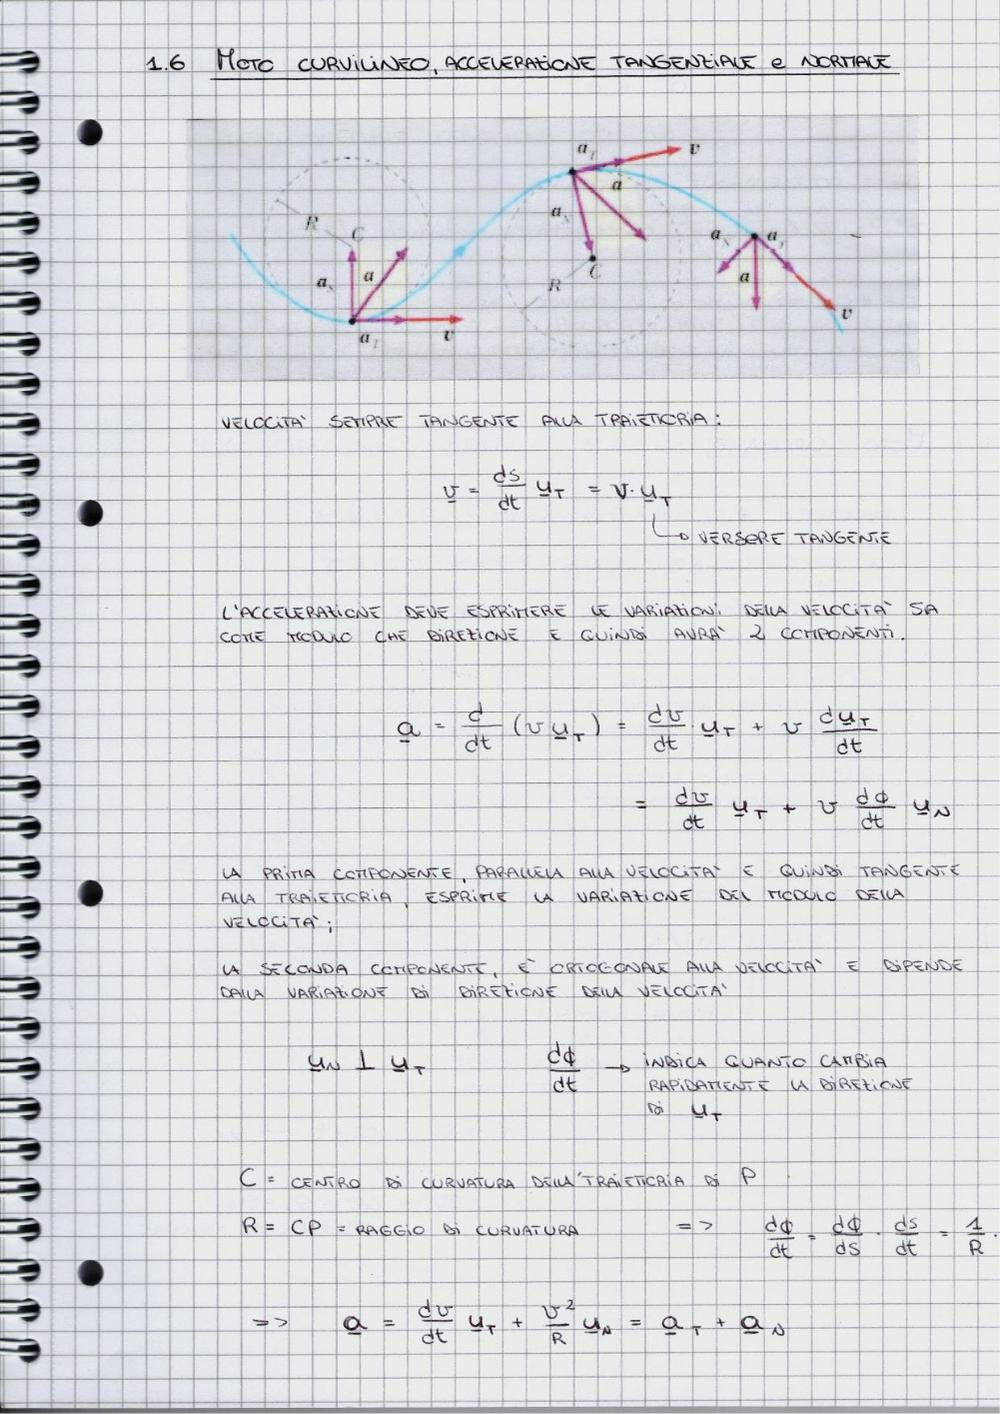 1.6 MOTO CURVILINEO, ACCELERAZIONE TANGENZIALE e NORMALE
a_T v
a
a_N
R C
C
a_N a
R
a_T v
a_N a_T
a
v
VELOCITA' SEMPRE TANGENTE ALLA TRAIETTORIA:
v = ds/dt u_T = v · u_T
↳ VERSORE TANGENTE
L'ACCELERAZIONE DEVE ESPRIMERE LE VARIAZIONI DELLA VELOCITA' SIA
COME MODULO CHE DIREZIONE E QUINDI AVRA' 2 COMPONENTI.
a = d/dt (v u_T) = dv/dt · u_T + v du_T/dt
= dv/dt u_T + v dφ/dt u_N
LA PRIMA COMPONENTE, PARALLELA ALLA VELOCITA' E QUINDI TANGENTE
ALLA TRAIETTORIA, ESPRIME LA VARIAZIONE DEL MODULO DELLA
VELOCITA';
LA SECONDA COMPONENTE, E' ORTOGONALE ALLA VELOCITA' E DIPENDE
DALLA VARIAZIONE DI DIREZIONE DELLA VELOCITA'
u_N ⊥ u_T dφ/dt → INDICA QUANTO CAMBIA
RAPIDAMENTE LA DIREZIONE
DI u_T
C = CENTRO DI CURVATURA DELLA TRAIETTORIA DI P
R = CP = RAGGIO DI CURVATURA => dφ/dt = dφ/ds · ds/dt = 1/R ·
=> a = dv/dt u_T + v²/R u_N = a_T + a_N